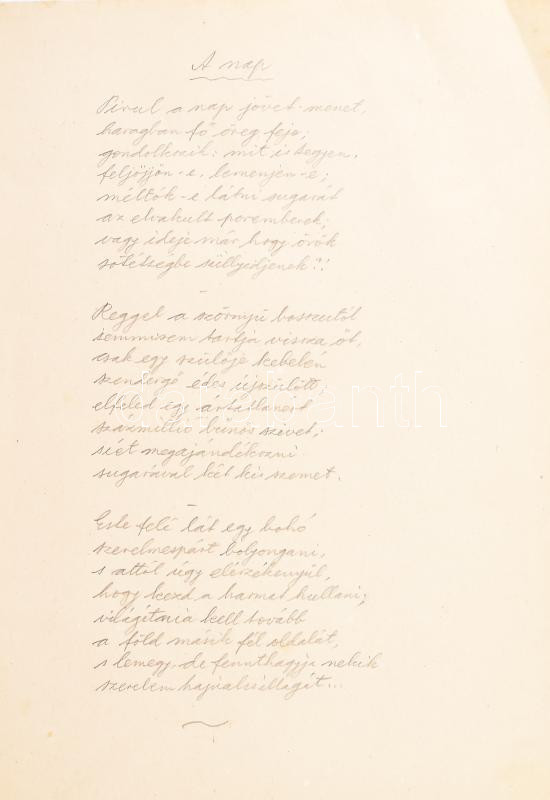 A nap
Pirul a nap jövet-menet,
haragban fő öreg feje;
gondolkozik: mit is tegyen,
feljöjjön-e, lemenjen-e;
méltók-e látni sugarát
az elvakult poremberek;
vagy ideje már, hogy örök
sötétségbe süllyedjenek?!
Reggel a szörnyű bosszutól
semmisem tartja vissza őt,
csak egy szülője kebelén
szendergő édes újszülött,
elfeled egy ártatlanért
százmillió bűnös szivet;
siet megajándékozni
sugarával két kis szemet.
Este felé lát egy bohó
szerelmespárt bolyongani,
s attól úgy elérzékenyül,
hogy kezd a harmat hullani;
világítnia kell tovább
a föld másik fél oldalát,
s lemegy, de fennthagyja nekik
szerelem hajnalcsillagát...